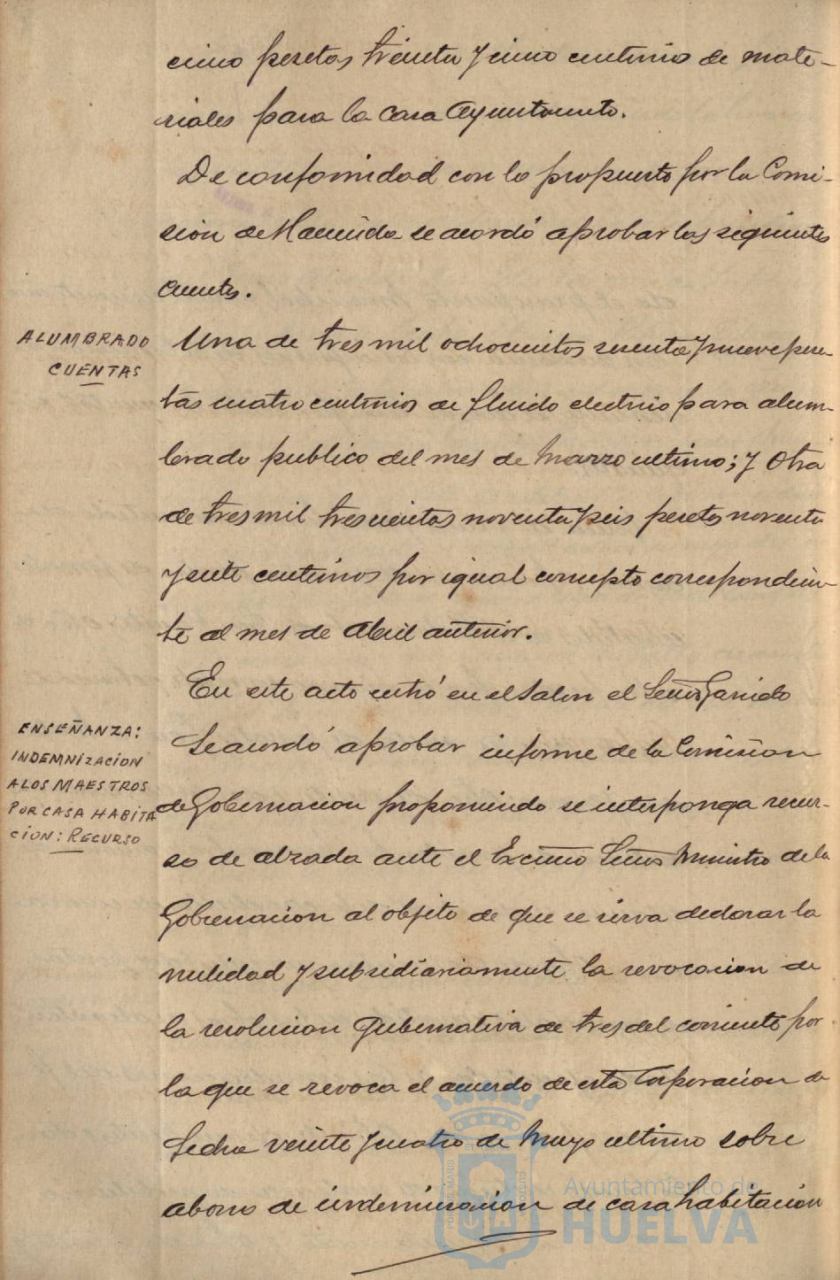 cinco pesetas treinta y cinco centimos de mate-
riales para la casa Ayuntamiento.
De conformidad con lo propuesto por la Comi-
sion de Hacienda se acordó aprobar las siguientes
cuentas.
ALUMBRADO
CUENTAS
Una de tres mil ochocientos sesenta y nueve pese-
tas cuatro centimos de fluido electrico para alum-
brado publico del mes de Marzo ultimo; y Otra
de tres mil trescientas noventa y seis pesetas noventa
y siete centimos por igual concepto correspondien-
te al mes de Abril anterior.
En este acto entró en el Salon el Señor Garrido
ENSEÑANZA:
INDEMNIZACION
A LOS MAESTROS
POR CASA HABITA
CION: RECURSO
Se acordó aprobar informe de la Comision
de Gobernacion proponiendo se interponga recur-
so de alzada ante el Excmo Señor Ministro de la
Gobernacion al objeto de que se sirva declarar la
nulidad y subsidiariamente la revocacion de
la resolucion Gubernativa de tres del corriente por
la que se revoca el acuerdo de esta Corporacion de
fecha veinte y cuatro de Mayo ultimo sobre
abono de indemnizacion de casa habitacion
Ayuntamiento de
HUELVA